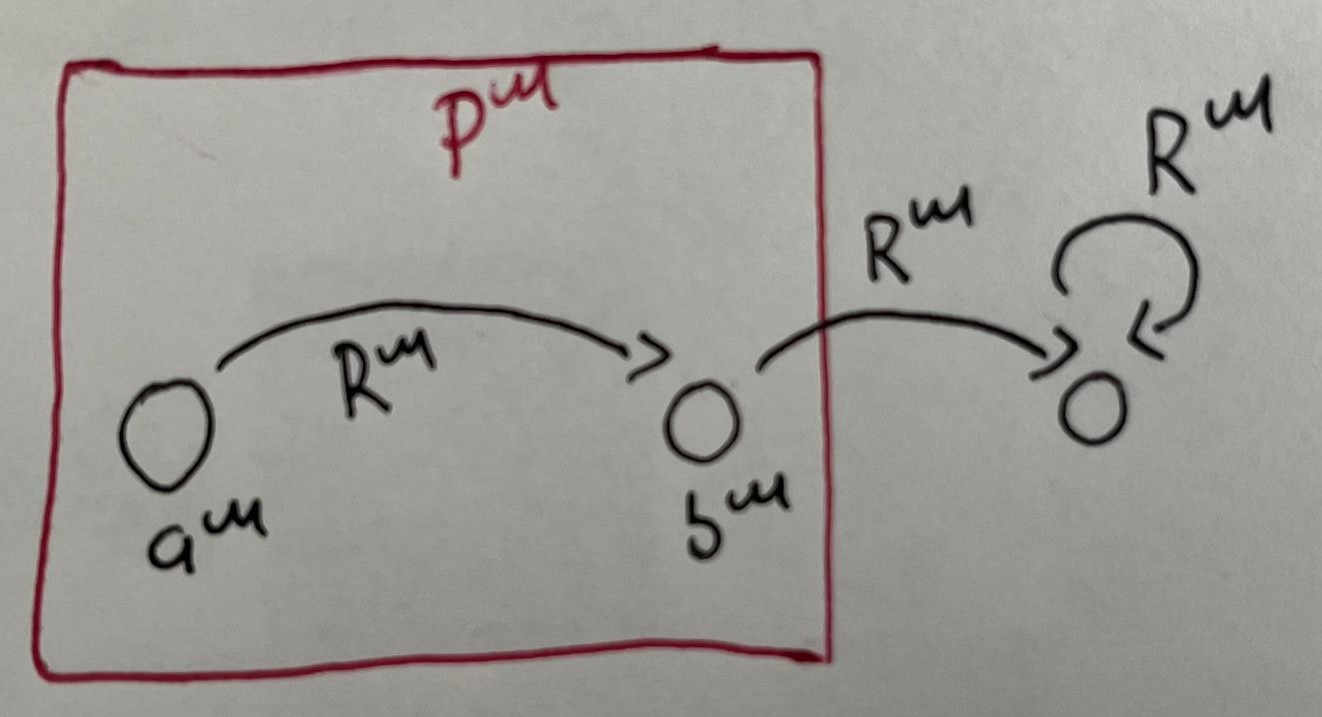 Pᵐ
Rᵐ
Rᵐ
Rᵐ
aᵐ
bᵐ